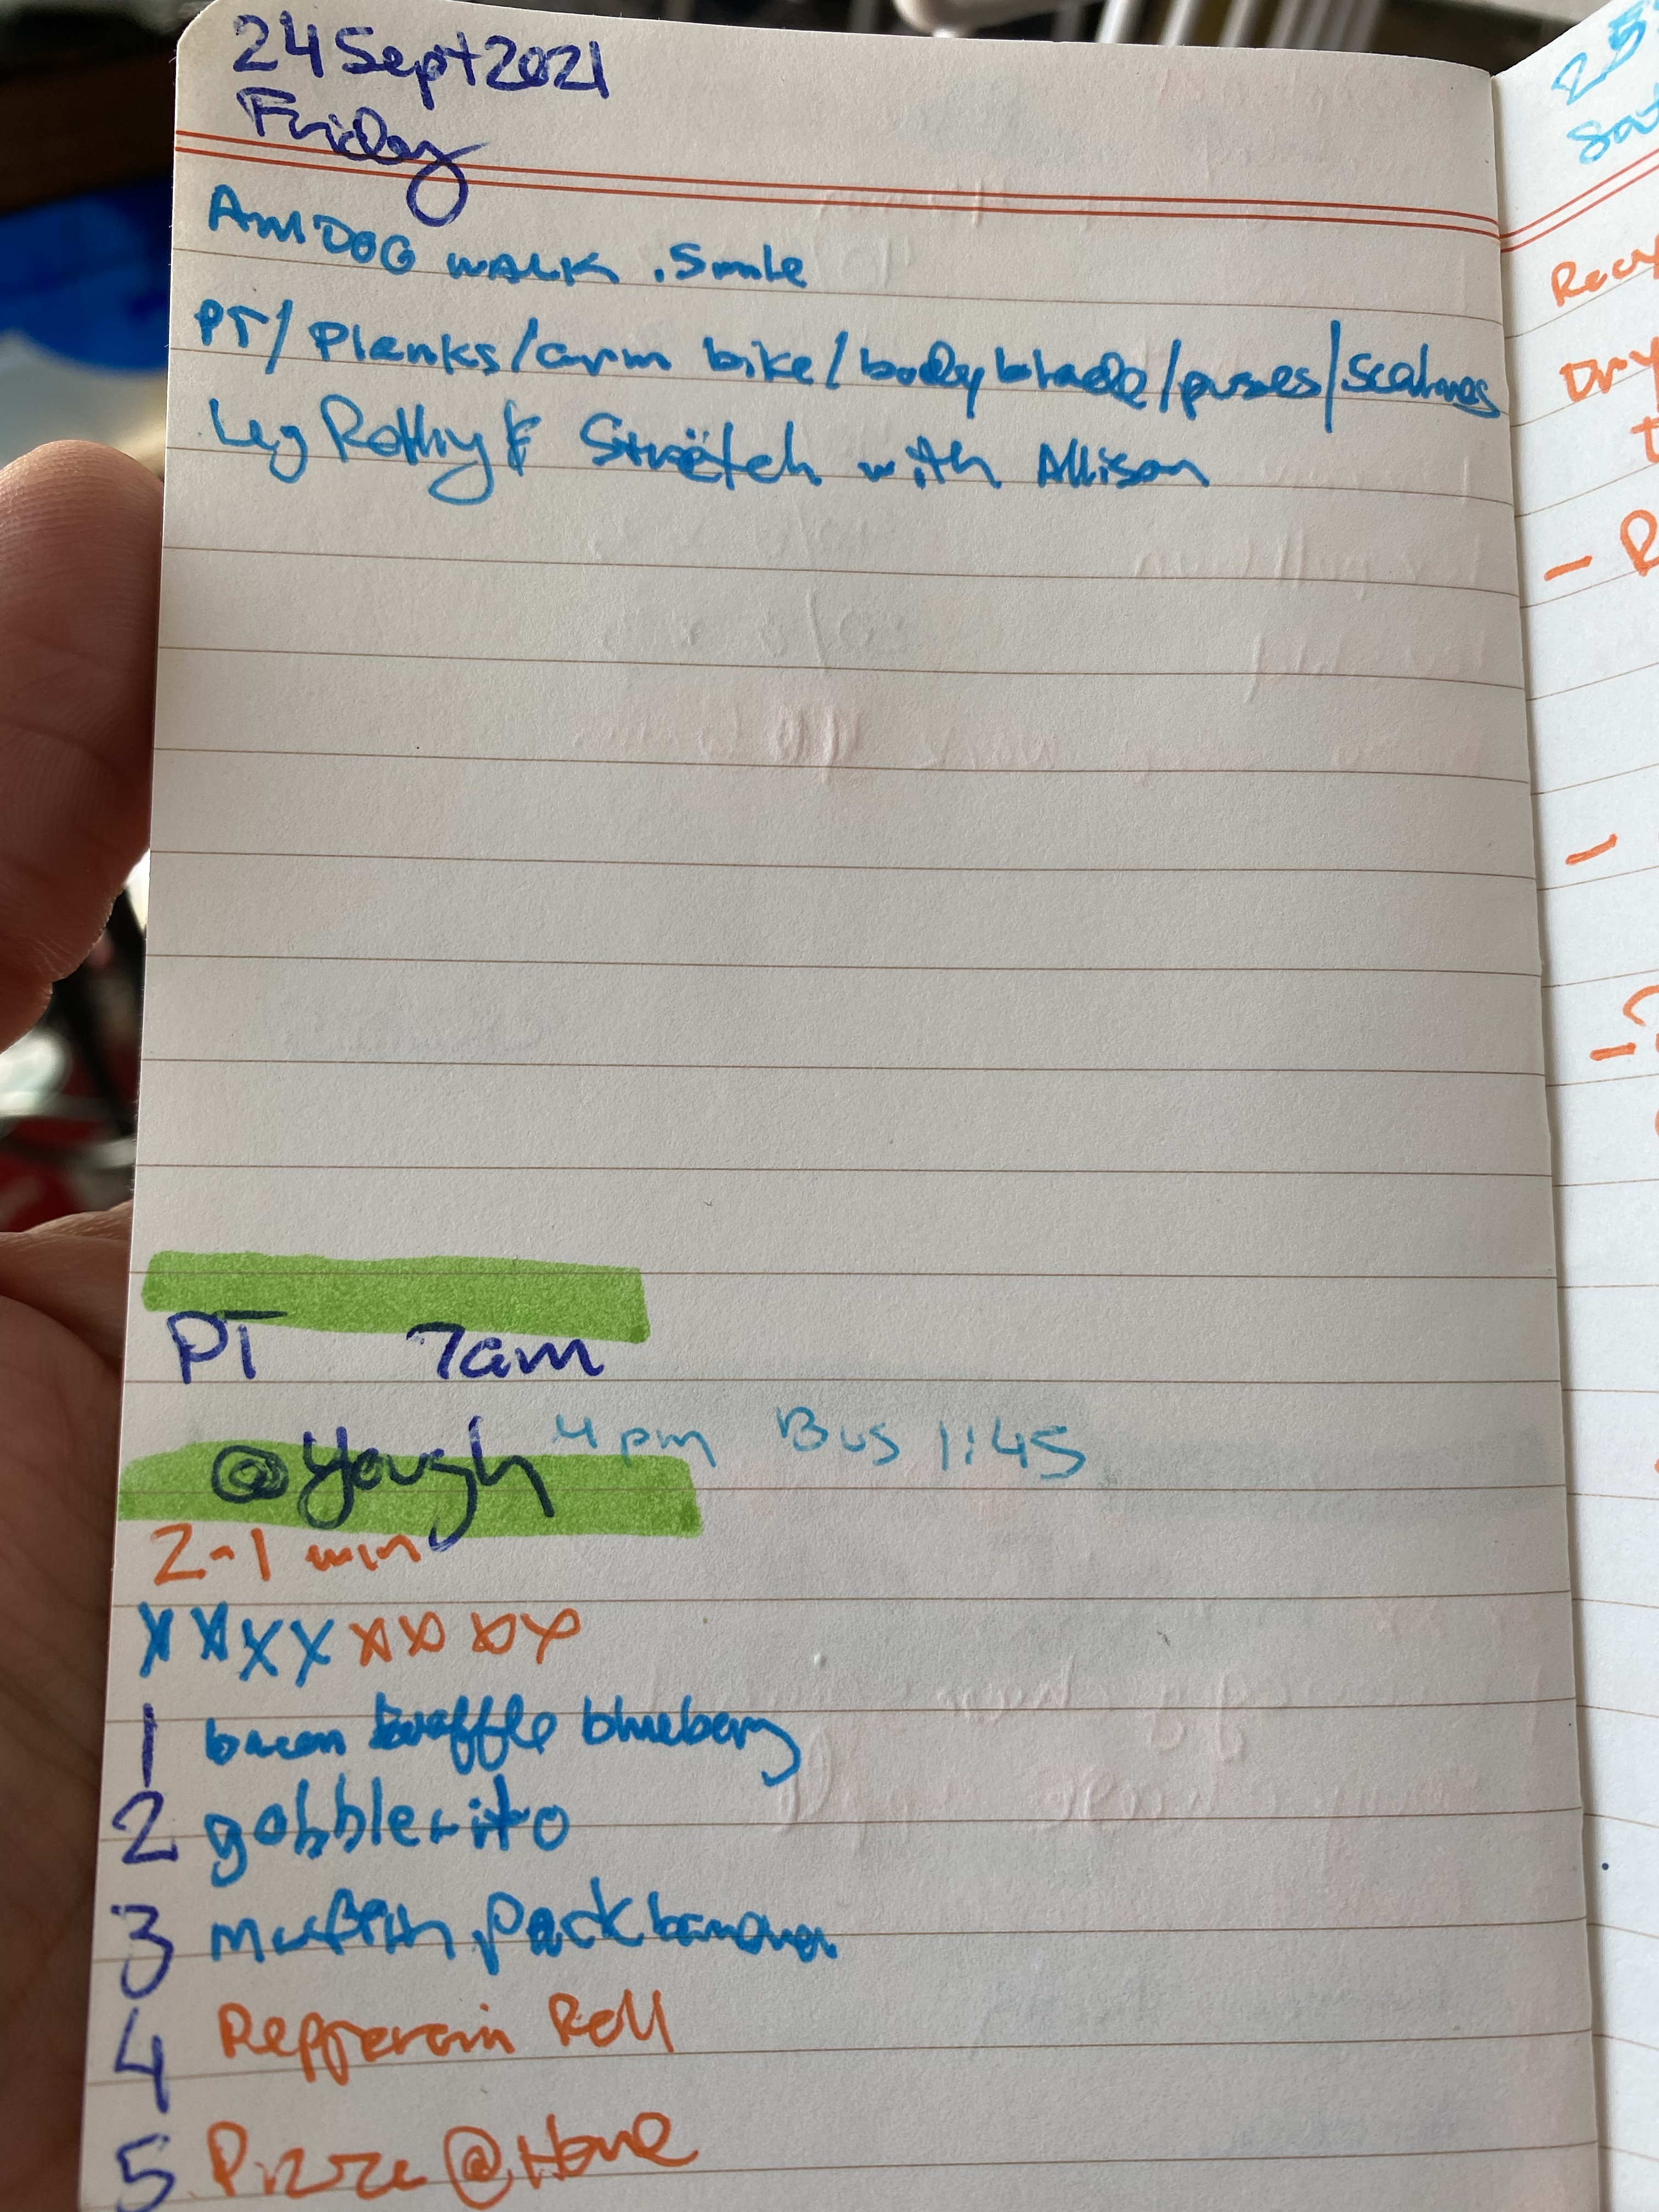 24 Sept 2021
Friday
AM DOG WALK .5mile
PT/ Planks/arm bike/body blade/
Leg & Stretch with Allison
PT 7am
@Yough 4pm Bus 1:45
2-1 min
X X X X X X X X
1 bacon waffle blueberry
2 gobblerito
3 muffin pack banana
4 Pepperoni Roll
5 Pizza @ Home
25
Sat
Recy
Dry
t
- R
-
-